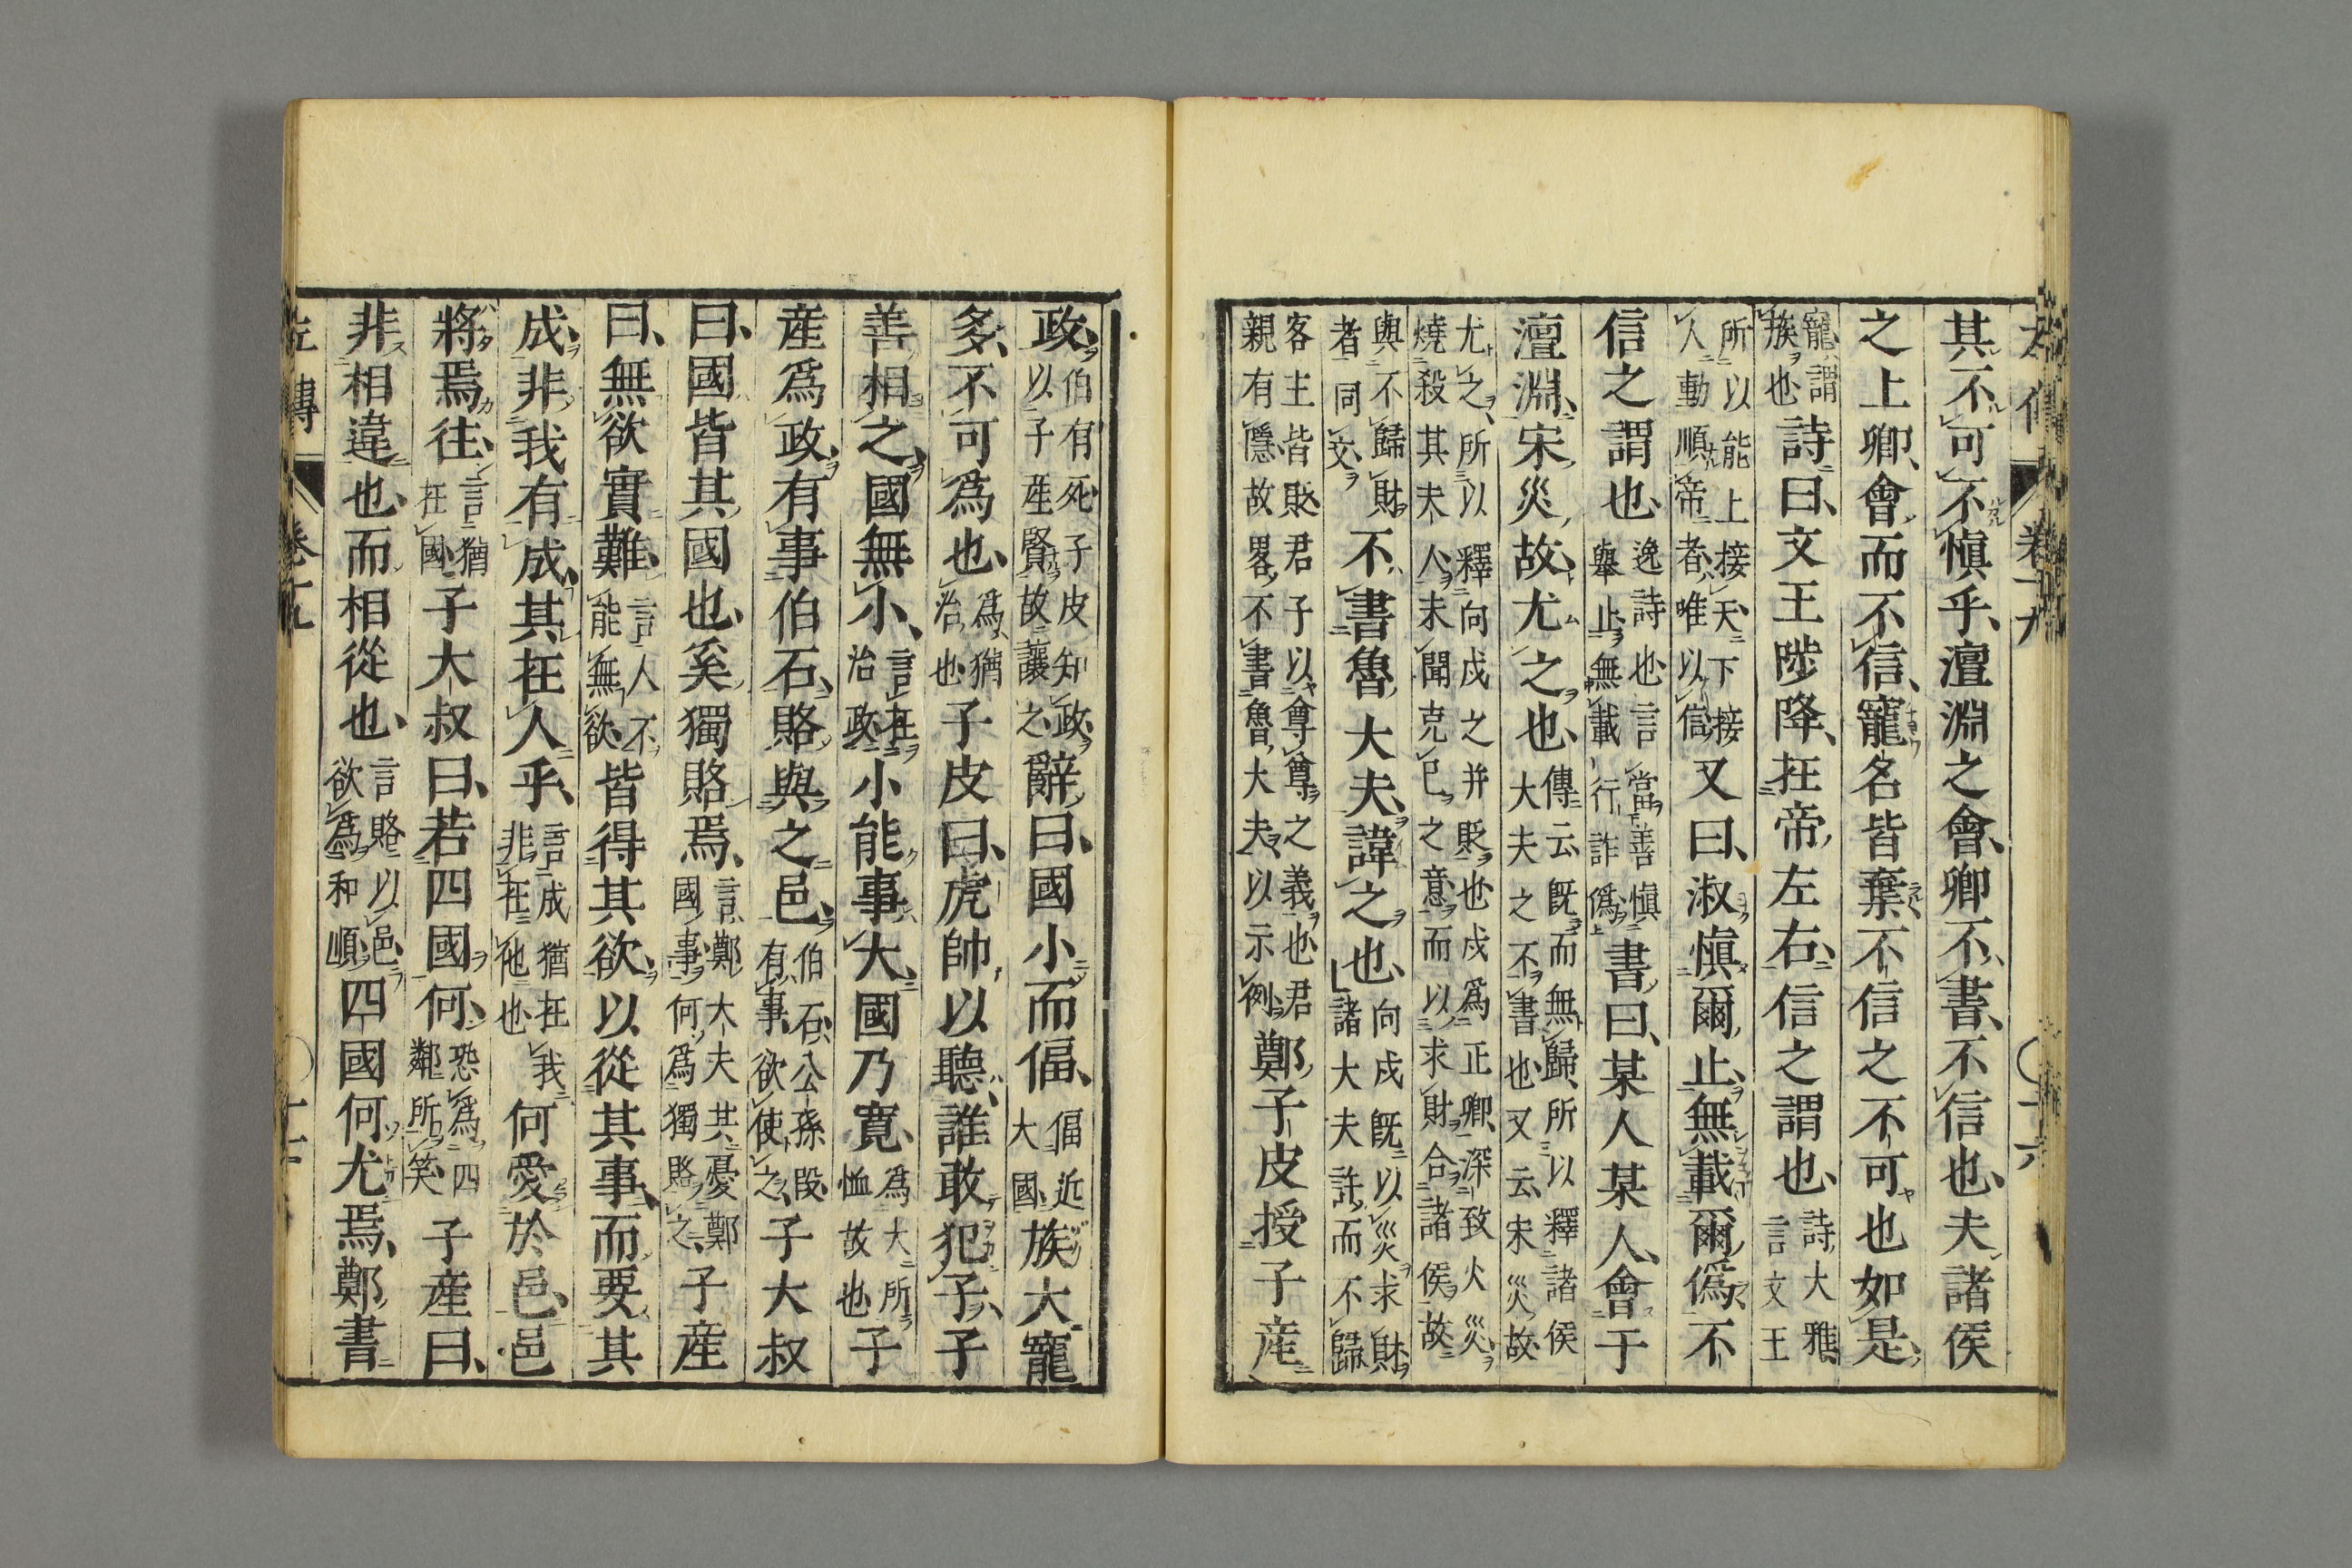 其不可不愼乎澶淵之會卿不書不信也夫諸侯
之上卿會而不信寵名皆棄不信之不可也如是
寵謂族也詩曰文王陟降在帝左右信之謂也詩大雅言文王
所以能上接天下接人動順帝者唯以信又曰淑愼爾止無載爾僞不
信之謂也逸詩也言當善愼擧止無載行詐僞書曰某人某人會于
澶淵宋災故尤之也傳云既而無歸所以釋諸侯大夫之不書也又云宋災故
尤之所以釋向戌之并貶也戌爲正卿深致火災燒殺其夫人未聞克已之意而以求財合諸侯故
與不歸財者同文不書魯大夫諱之也向戌既以災求財諸大夫許而不歸
客主皆貶君子以尊尊之義也君親有隱故畧不書魯大夫以示例鄭子皮授子産
政伯有死子皮知政以子産賢故讓之辭曰國小而偪偪近大國族大寵
多不可爲也爲猶治也子皮曰虎帥以聽誰敢犯子子
善相之國無小言在治政小能事大國乃寛爲大所恤故也子
産爲政有事伯石賂與之邑伯石公孫段有事欲使之子大叔
曰國皆其國也奚獨賂焉言鄭大夫共憂鄭國事何爲獨賂之子産
曰無欲實難言人不能無欲皆得其欲以從其事而要其
成非我有成其在人乎言成猶在我非在他也何愛於邑邑
將焉往言猶在國子大叔曰若四國何恐爲四鄰所笑子産曰
非相違也而相從也言賂以邑欲爲和順四國何尤焉鄭書
左傳 卷十九